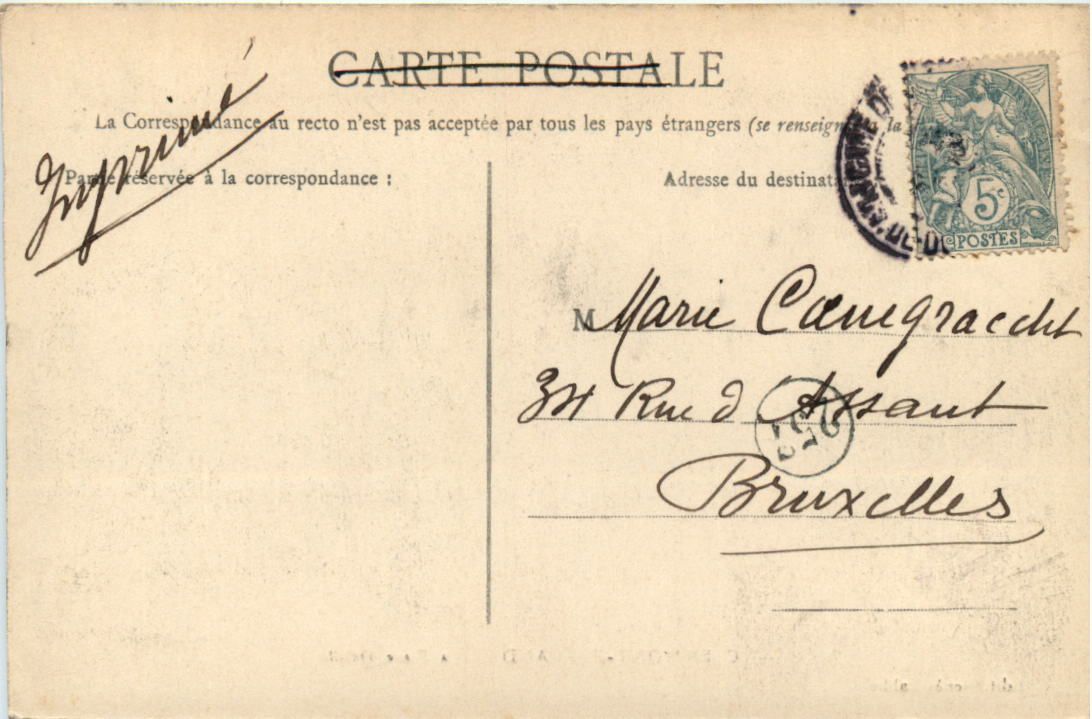 CARTE POSTALE
Imprimé
La Correspondance au recto n'est pas acceptée par tous les pays étrangers (se renseigner la
Partie réservée à la correspondance :
Adresse du destinata
5c
POSTES
DE-DO
M Marie Coenegracht
34 Rue d Assaut
257
Bruxelles